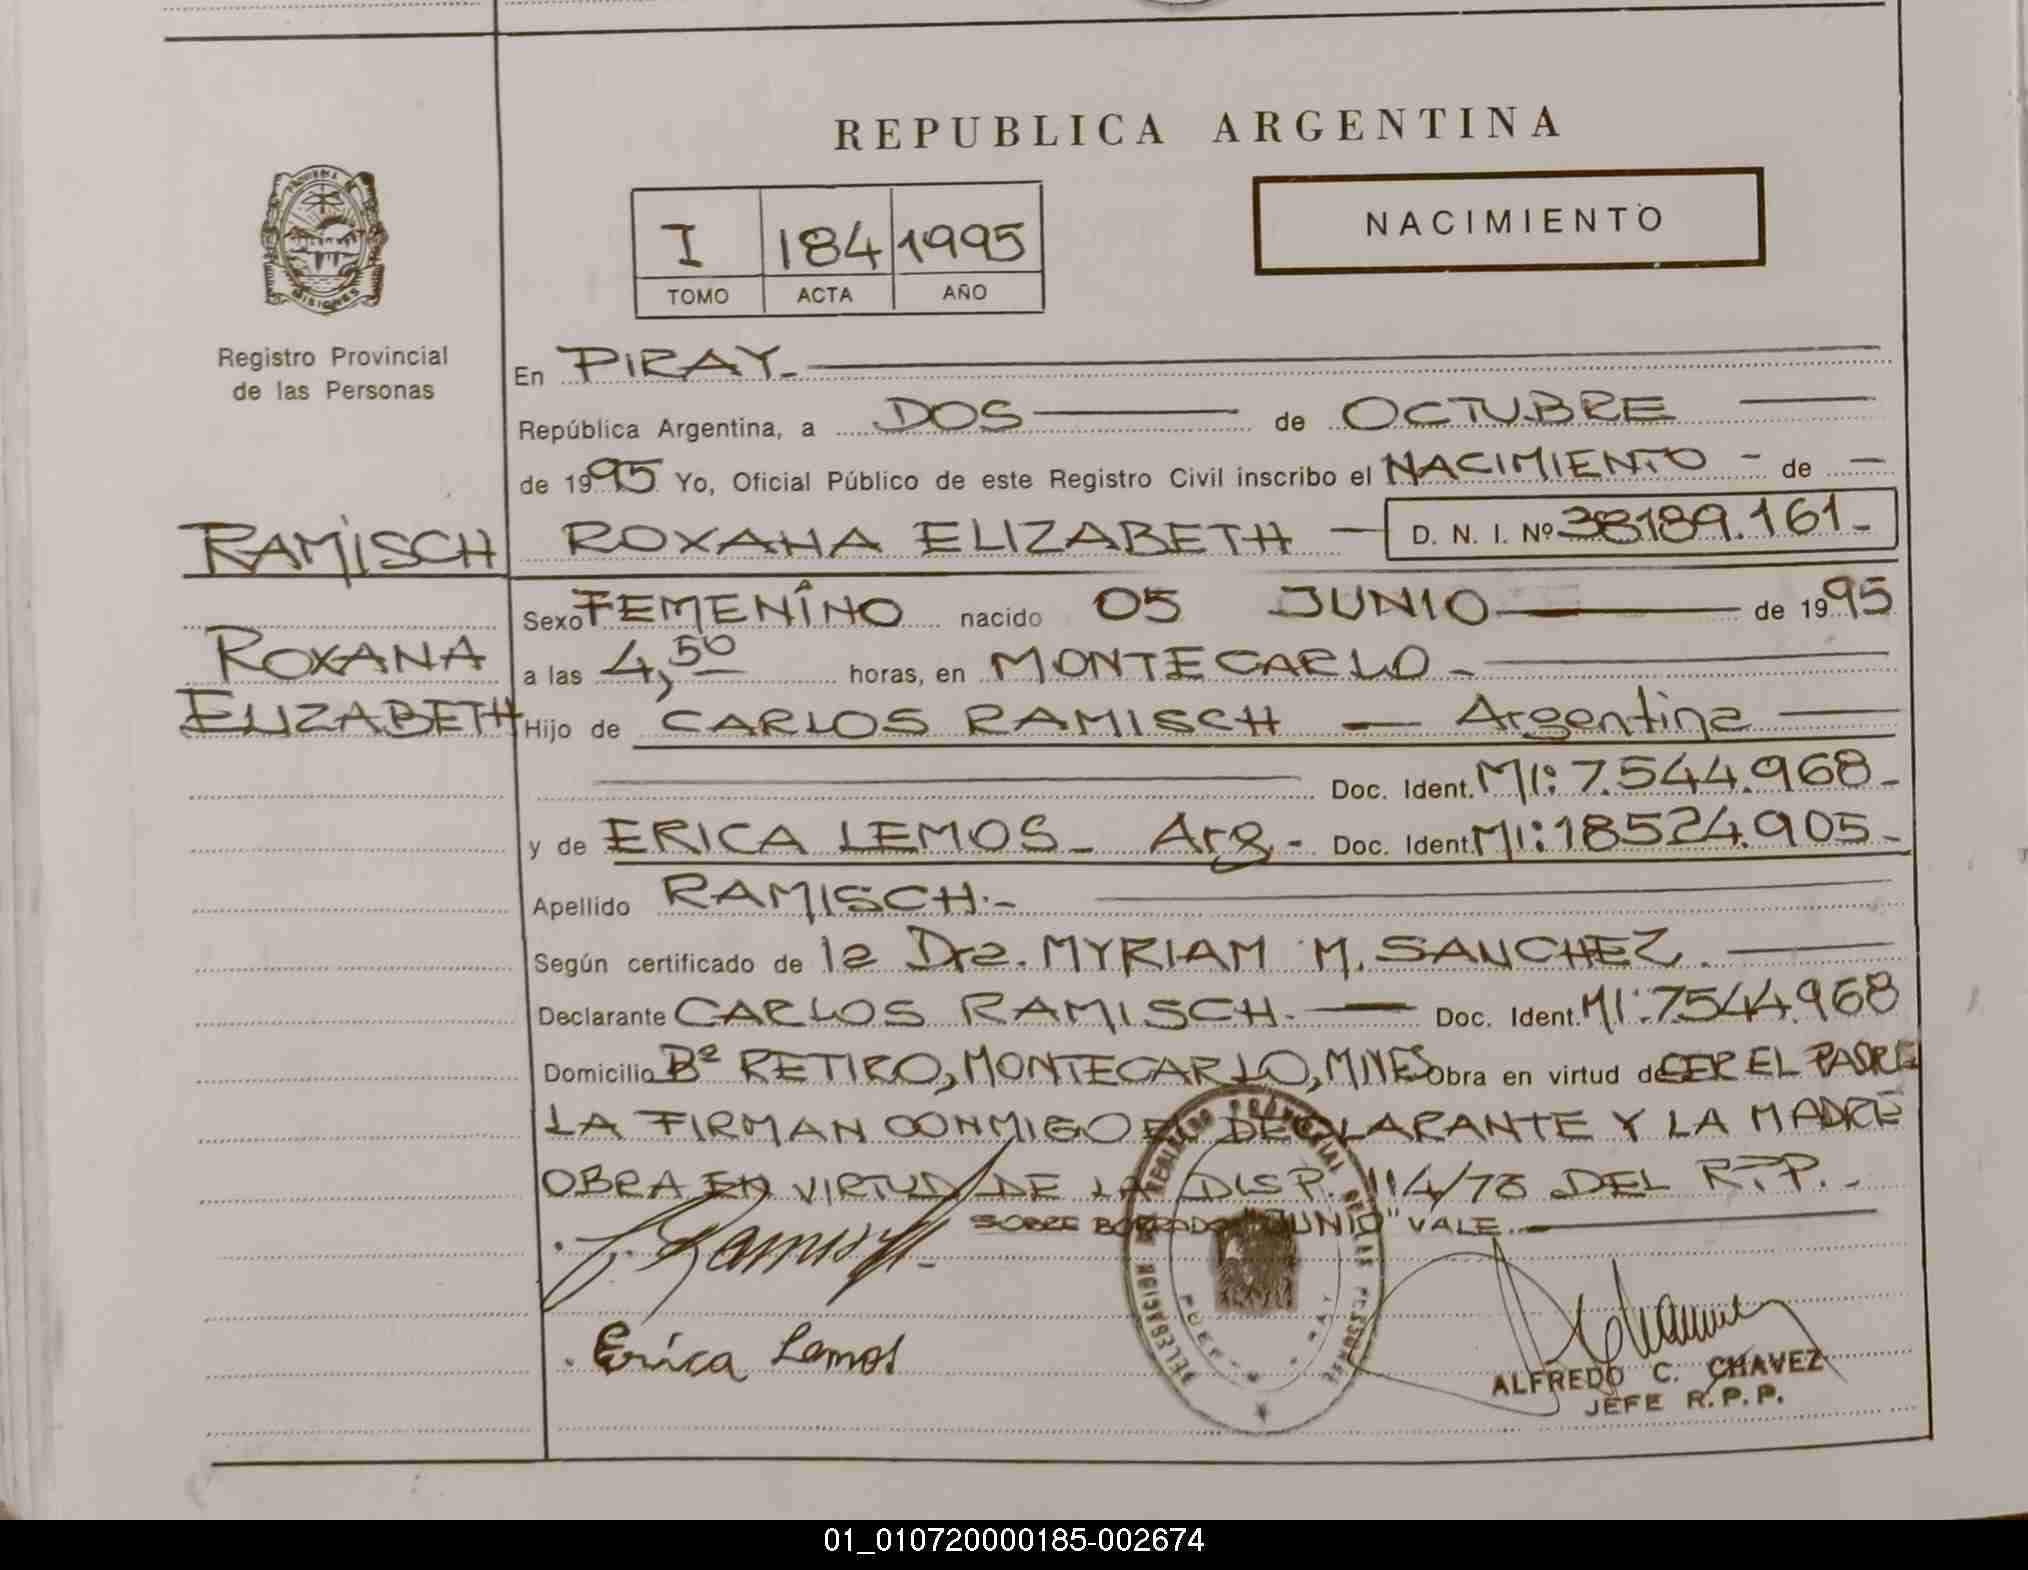 REPUBLICA ARGENTINA
NACIMIENTO
I 184 1995
TOMO ACTA AÑO
MISIONES
Registro Provincial
de las Personas
En PIRAY.-
República Argentina, a DOS de OCTUBRE
de 1995 Yo, Oficial Público de este Registro Civil inscribo el NACIMIENTO - de -
RAMISCH
ROXANA ELIZABETH - D. N. I. Nº 38189.161-
Sexo FEMENINO nacido 05 JUNIO de 1995
ROXANA
ELIZABETH
a las 4,50 horas, en MONTECARLO -
Hijo de CARLOS RAMISCH - Argentina
Doc. Ident. MI: 7.544.968-
y de ERICA LEMOS - Arg.- Doc. Ident. MI: 18524.905-
Apellido RAMISCH.-
Según certificado de la Dra. MYRIAM M. SANCHEZ.
Declarante CARLOS RAMISCH. - Doc. Ident. MI: 7544.968
Domicilio Bº RETIRO, MONTECARLO, MNES Obra en virtud de SER EL PADRE
LA FIRMAN CONMIGO EL DECLARANTE Y LA MADRE
OBRA EN VIRTUD DE LA DISP. 114/78 DEL R.P.P.-
SOBRE BORRADO "JUNIO" VALE.-
Ramisch
Erica Lemos
ALFREDO C. CHAVEZ
JEFE R.P.P.
01_010720000185-002674